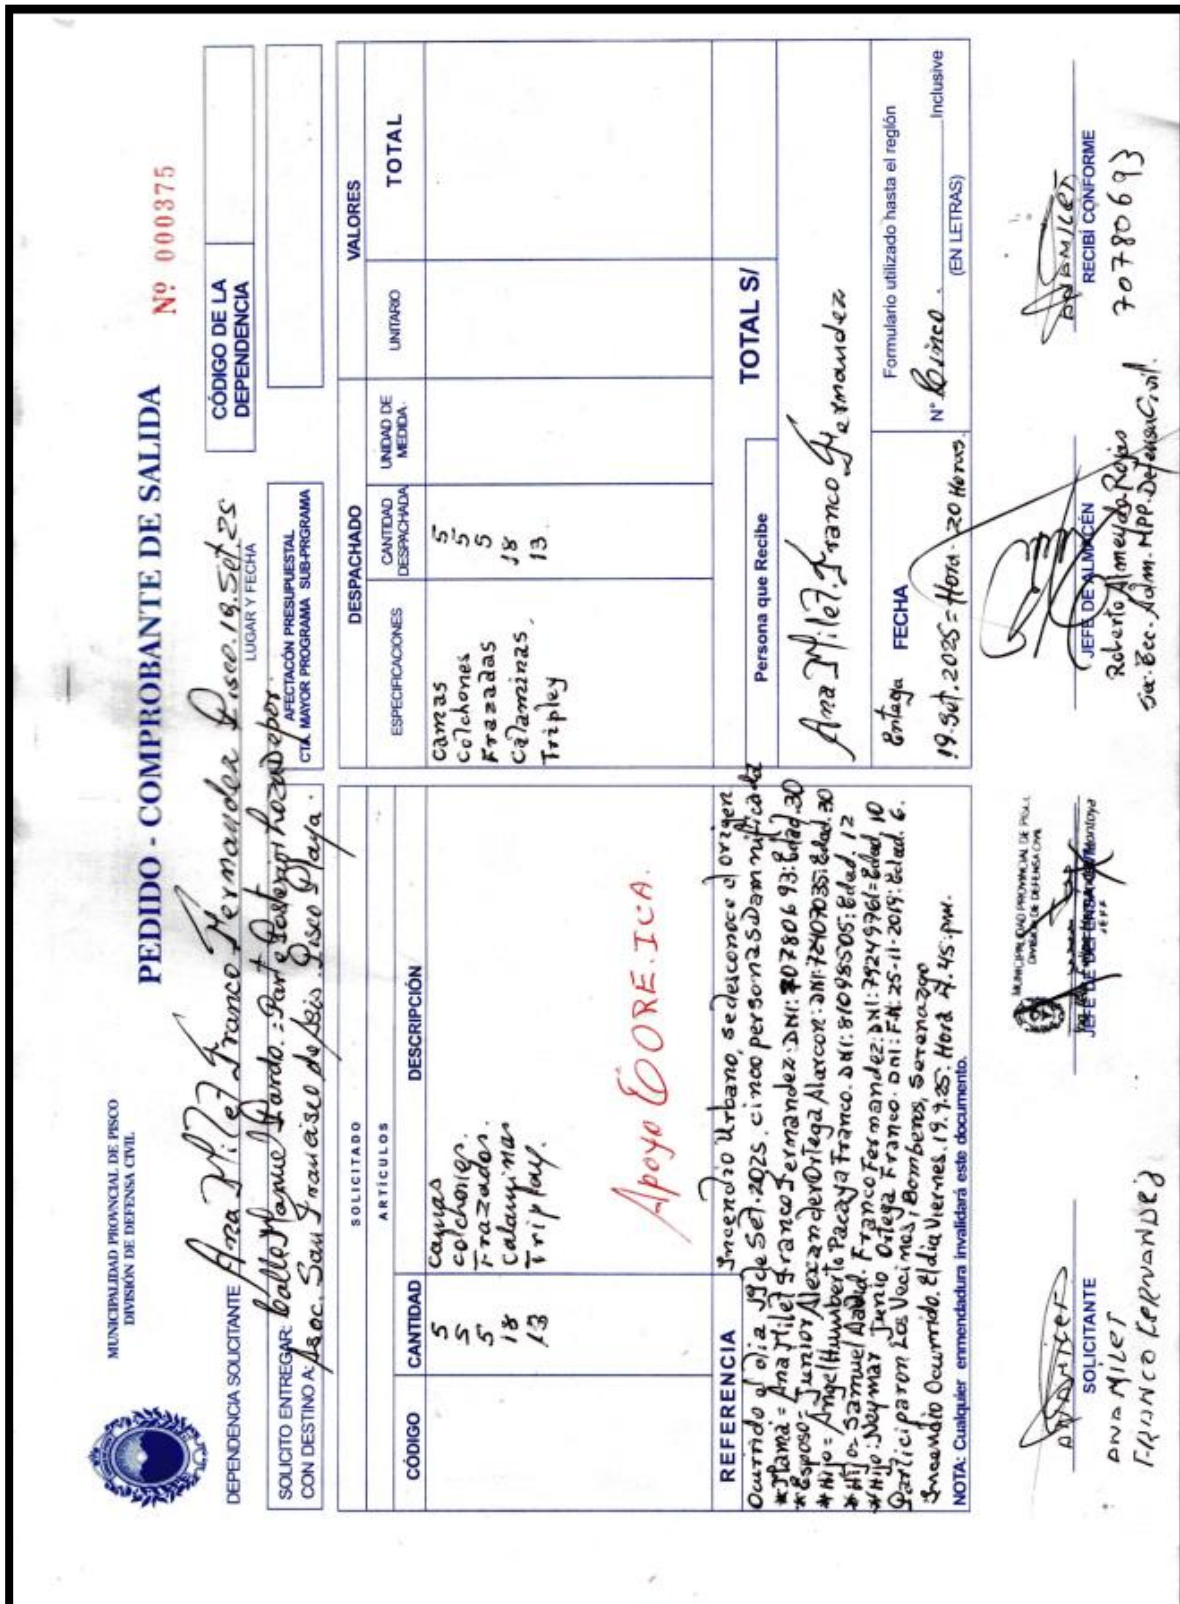 MUNICIPALIDAD PROVINCIAL DE PISCO
DIVISIÓN DE DEFENSA CIVIL
PEDIDO - COMPROBANTE DE SALIDA
Nº 000375
DEPENDENCIA SOLICITANTE Ana Milet Franco Fernandez Pisco. 19. Set. 25
LUGAR Y FECHA
CÓDIGO DE LA DEPENDENCIA
SOLICITO ENTREGAR: Calle Manuel Pardo. = Parte Posterior Depor.
CON DESTINO A: Asoc. San Francisco de Asis. Pisco Playa.
AFECTACÓN PRESUPUESTAL
CTA. MAYOR PROGRAMA SUB-PRGRAMA
SOLICITADO
ARTÍCULOS
DESPACHADO
VALORES
CÓDIGO CANTIDAD DESCRIPCIÓN ESPECIFICACIONES CANTIDAD DESPACHADA UNIDAD DE MEDIDA. UNITARIO TOTAL
5 Camas Camas 5
5 Colchones. Colchones 5
5 Frazadas. Frazadas 5
18 Calaminas Calaminas. 18
13 Triplay. Tripley 13
Apoyo COORE. ICA.
REFERENCIA Incendio Urbano, se desconoce el origen
Ocurrido el dia 19 de Set. 2025. cinco personas Damnificada
*Mama = Ana Milet Franco Fernandez: DNI: 70780693: Edad. 30
*Esposo = Junior Alexander Ortega Alarcon: DNI: 72107035: Edad. 30
*Hijo = Angel Humberto Pacaya Franco. DNI: 81098505: Edad. 12
*Hijo = Samuel Franco Fernandez: DNI: 79249761 = Edad. 10
*Hijo: Neymar Junio Ortega Franco. DNI: FN: 25-11-2019: Edad. 6.
Participaron Los Vecinos, Bomberos, Serenazgo
Incendio Ocurrido. El dia Viernes. 19.9.25: Hora 45. pm.
NOTA: Cualquier enmendadura invalidará este documento.
Persona que Recibe
TOTAL S/
Ana Milet. Franco Fernandez
Entrega FECHA
19. Set. 2025 = Hora. 20 Horas.
Formulario utilizado hasta el reglón
N° Cinco. Inclusive
(EN LETRAS)
ANAMILET
SOLICITANTE
ANA MILET
FRANCO FERNANDEZ
MUNICIPALIDAD PROVINCIAL DE PISCO
DIVISIÓN DE DEFENSA CIVIL
Montoya
JEFE
JEFE DE DEFENSA CIVIL
JEFE DE ALMACÉN
Roberto Almeyda Rojas
Adm. MPP. Defensa Civil.
ANAMILET
RECIBÍ CONFORME
70780693